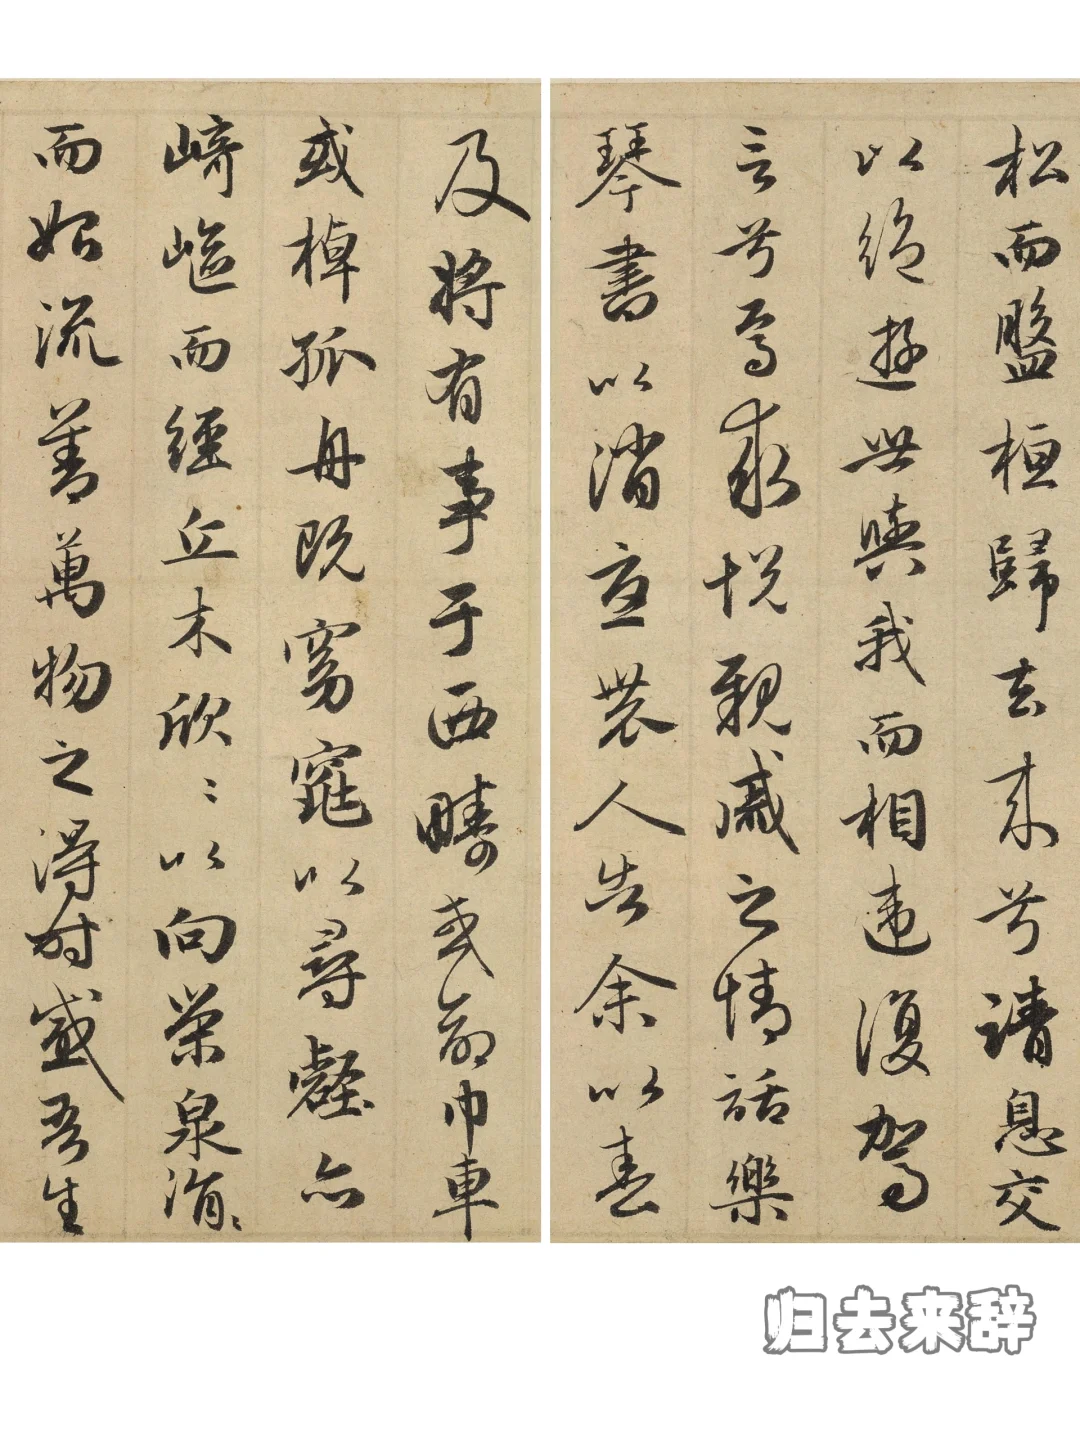 松而盤桓歸去来兮請息交
以絶遊世與我而相違復駕
言兮焉求悦親戚之情話樂
琴書以消憂農人告余以春
及将有事于西疇或命巾車
或棹孤舟既窈窕以尋壑亦
崎嶇而經丘木欣〻以向榮泉涓〻
而始流善萬物之得時感吾生
归去来辞